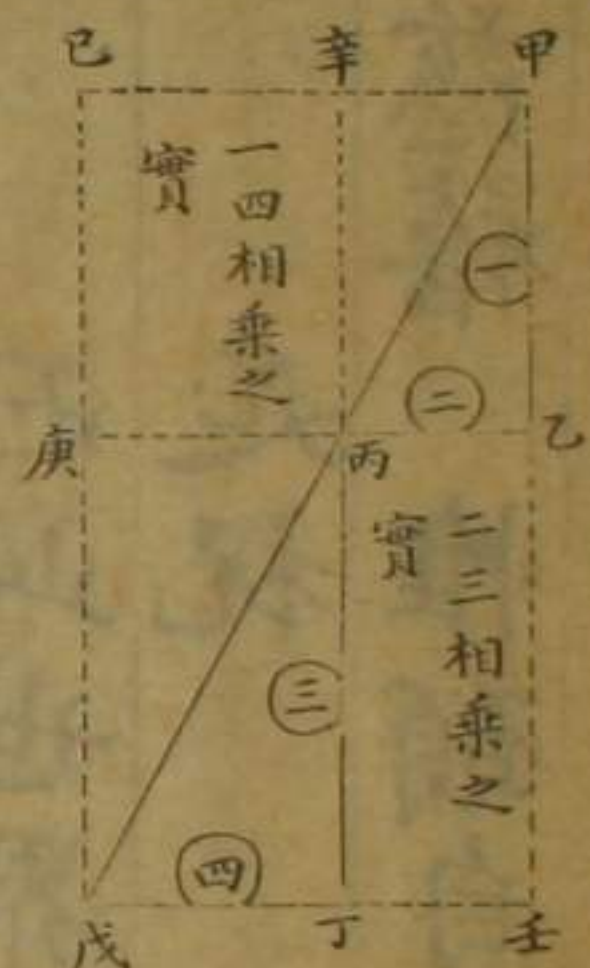 甲
辛
巳
一
一四相乘之
實
二
乙
丙
庚
二三相乘之
實
三
四
壬
丁
戊